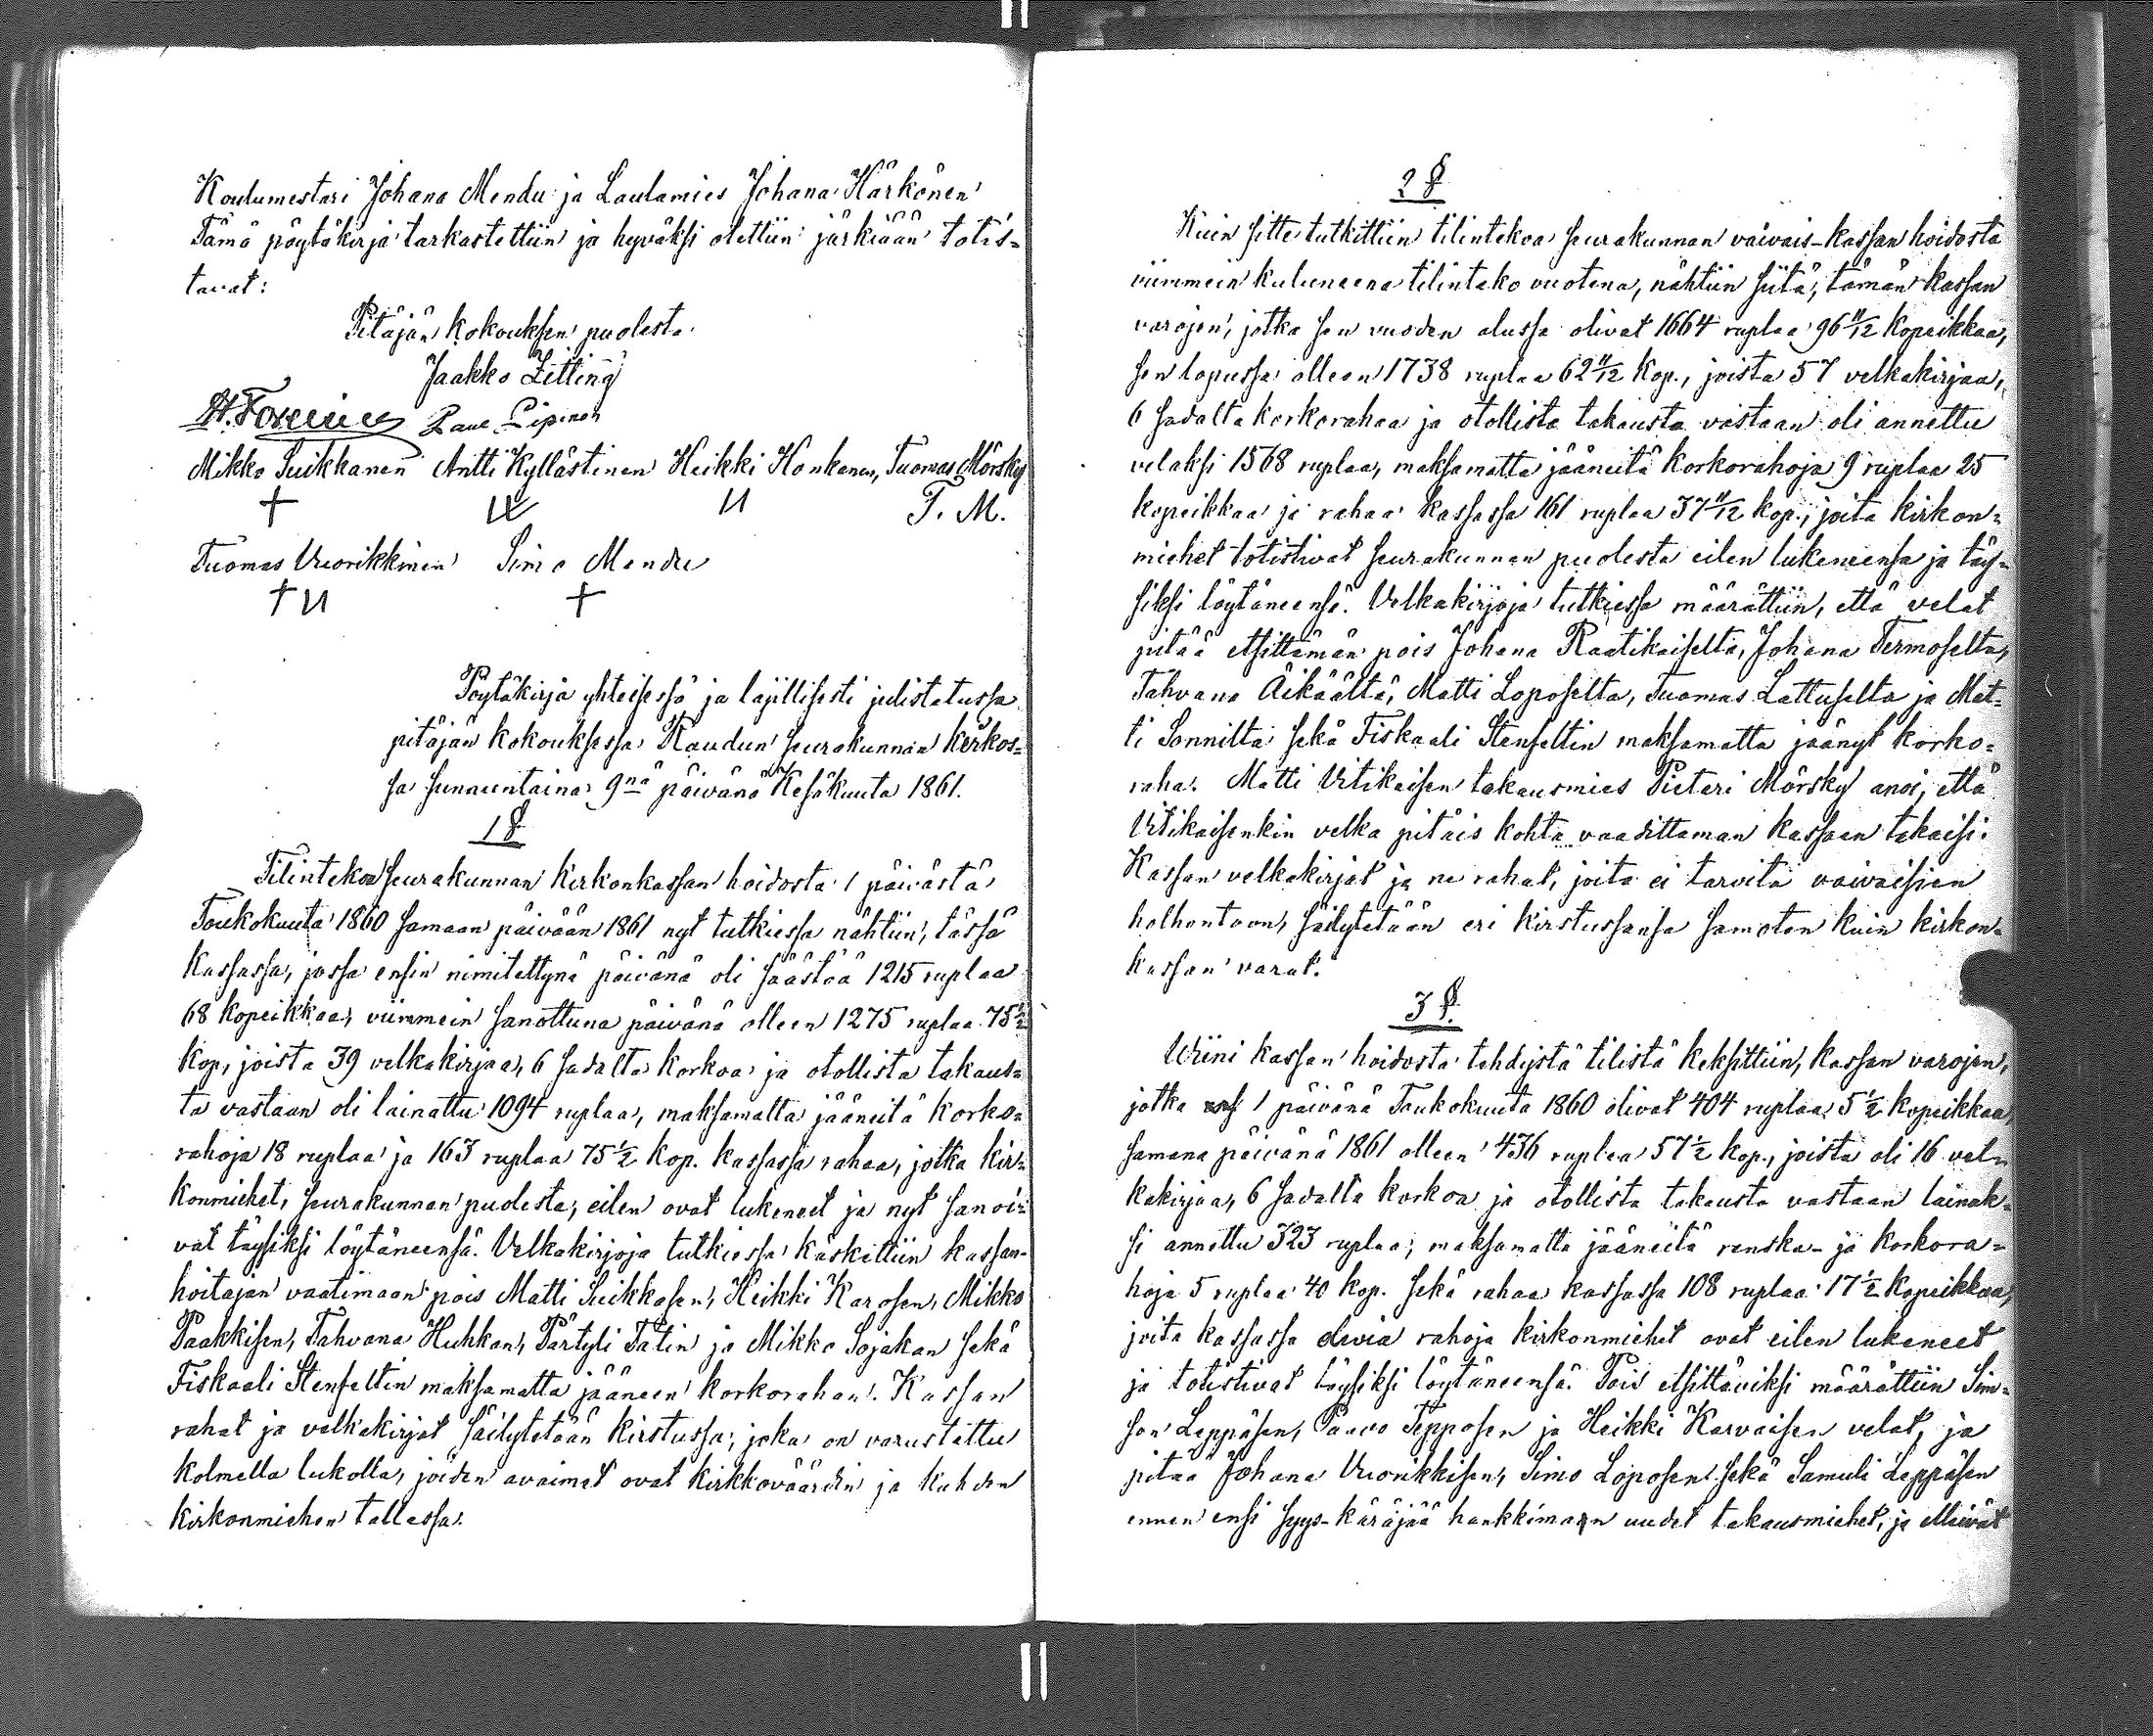 Koulumestari Johana Mendu ja Laulamies Johana Härkönen
Tämä pöytäkirja tarkastettiin ja hyväksi otettiin järkiään totis=
tavat:
Pitäjän kokouksen puolesta
Jaakko Zitting
Mikko Suikkanen Antti Kyllästinen Heikki Honkanen, Tuomas Mörsky
T. M.
Tuomas Vuorikkinen Simo Mendu
Pöytäkirja yhteisessä ja lajillisesti julistetussa
pitäjän kokouksessa Raudun seurakunnan kirkos=
sa sunnuntaina 9nä päivänä Kesäkuuta 1861.
1 §
Tilintekoa seurakunnan kirkonkassan hoidosta 1 päivästä
Toukokuuta 1860 samaan päivään 1861 nyt tutkiessa nähtiin, tässä
kassassa, jossa ensin nimitettynä päivänä oli säästöä 1215 ruplaa
68 kopeikkaa, viimmein sanottuna päivänä olleen 1275 ruplaa 75½
kop, joista 39 velkakirjaa, 6 sadalta korkoa ja otollista takaus=
ta vastaan oli lainattu 1094 ruplaa, maksamatta jääneitä korko=
rahoja 18 ruplaa ja 163 ruplaa 75½ kop. kassassa rahaa, jotka kir=
konmiehet, seurakunnan puolesta, eilen ovat lukeneet ja nyt sanoi=
vat täysiksi löytäneensä. Velkakirjoja tutkiessa käskittiin kassan-
hoitajan vaatimaan pois Matti Suikkasen, Heikki Karosen, Mikko
Paakkisen, Tahvana Huhkan, Pärtyli Tatin ja Mikko Sojakan sekä
Fiskaali Stenfeltin maksamatta jääneen korkorahan. Kassan
rahat ja velkakirjat säilytetään kirstussa, joka on varustettu
kolmella lukolla, joiden avaimet ovat kirkkoväärdin ja kahden
kirkonmiehen tallessa.
2 §
Kuin sitte tutkittiin tilintekoa seurakunnan vaivais-kassan hoidosta
viimmein kuluneena tilinteko vuotena, nähtiin siitä, tämän kassan
varojen, jotka sen vuoden alussa olivat 1664 ruplaa 96 11/12 kopeikkaa,
sen lopussa olleen 1738 ruplaa 62 11/12 kop., joista 57 velkakirjaa,
6 sadalta korkorahaa ja otollista takausta vastaan oli annettu
velaksi 1568 ruplaa, maksamatta jääneitä korkorahoja 9 ruplaa 25
kopeikkaa ja rahaa kassassa 161 ruplaa 37 11/12 kop., joita kirkon=
miehet totistivat seurakunnan puolesta eilen lukeneensa ja täy=
siksi löytäneensä. Velkakirjoja tutkiessa määrättiin, että velat
pitää etsittämän pois Johana Raatikaiselta, Johana Termoselta,
Tahvana Äikäältä, Matti Loposelta, Tuomas Lattuselta ja Mat=
ti Sonnilta sekä Fiskaali Stenfeltin maksamatta jäänyt korko=
raha. Matti Vitikaisen takausmies Pietari Mörsky anoi, että
Vitikaisenkin velka pitäis kohta vaadittaman kassaan takaisi.
Kassan velkakirjat ja ne rahat, joita ei tarvita vaivaisien
holhontoon, säilytetään eri kirstussansa samoten kuin kirkon=
kassan varat.
3 §.
Wiini kassan hoidosta tehdystä tilistä keksittiin, kassan varojen,
jotka 1 päivänä Toukokuuta 1860 olivat 404 ruplaa 5½ kopeikkaa,
samana päivänä 1861 olleen 436 ruplaa 57½ kop., joista oli 16 vel=
kakirjaa, 6 sadalta korkoa ja otollista takausta vastaan lainak=
si annettu 323 ruplaa; maksamatta jääneitä renska- ja korkora=
hoja 5 ruplaa 40 kop. sekä rahaa kassassa 108 ruplaa 17½ kopeikkaa,
joita kassassa olevia rahoja kirkonmiehet ovat eilen lukeneet
ja totistivat täysiksi löytäneensä. Pois etsittäviksi määrättiin Sim=
son Leppäsen, Paavo Tepposen ja Heikki Karvaisen velat, ja
pitää Johana Vuorikkisen, Simo Loposen sekä Samuli Leppäsen
ennen ensi syys-käräjää hankkimaan uudet takausmiehet, ja elleivät